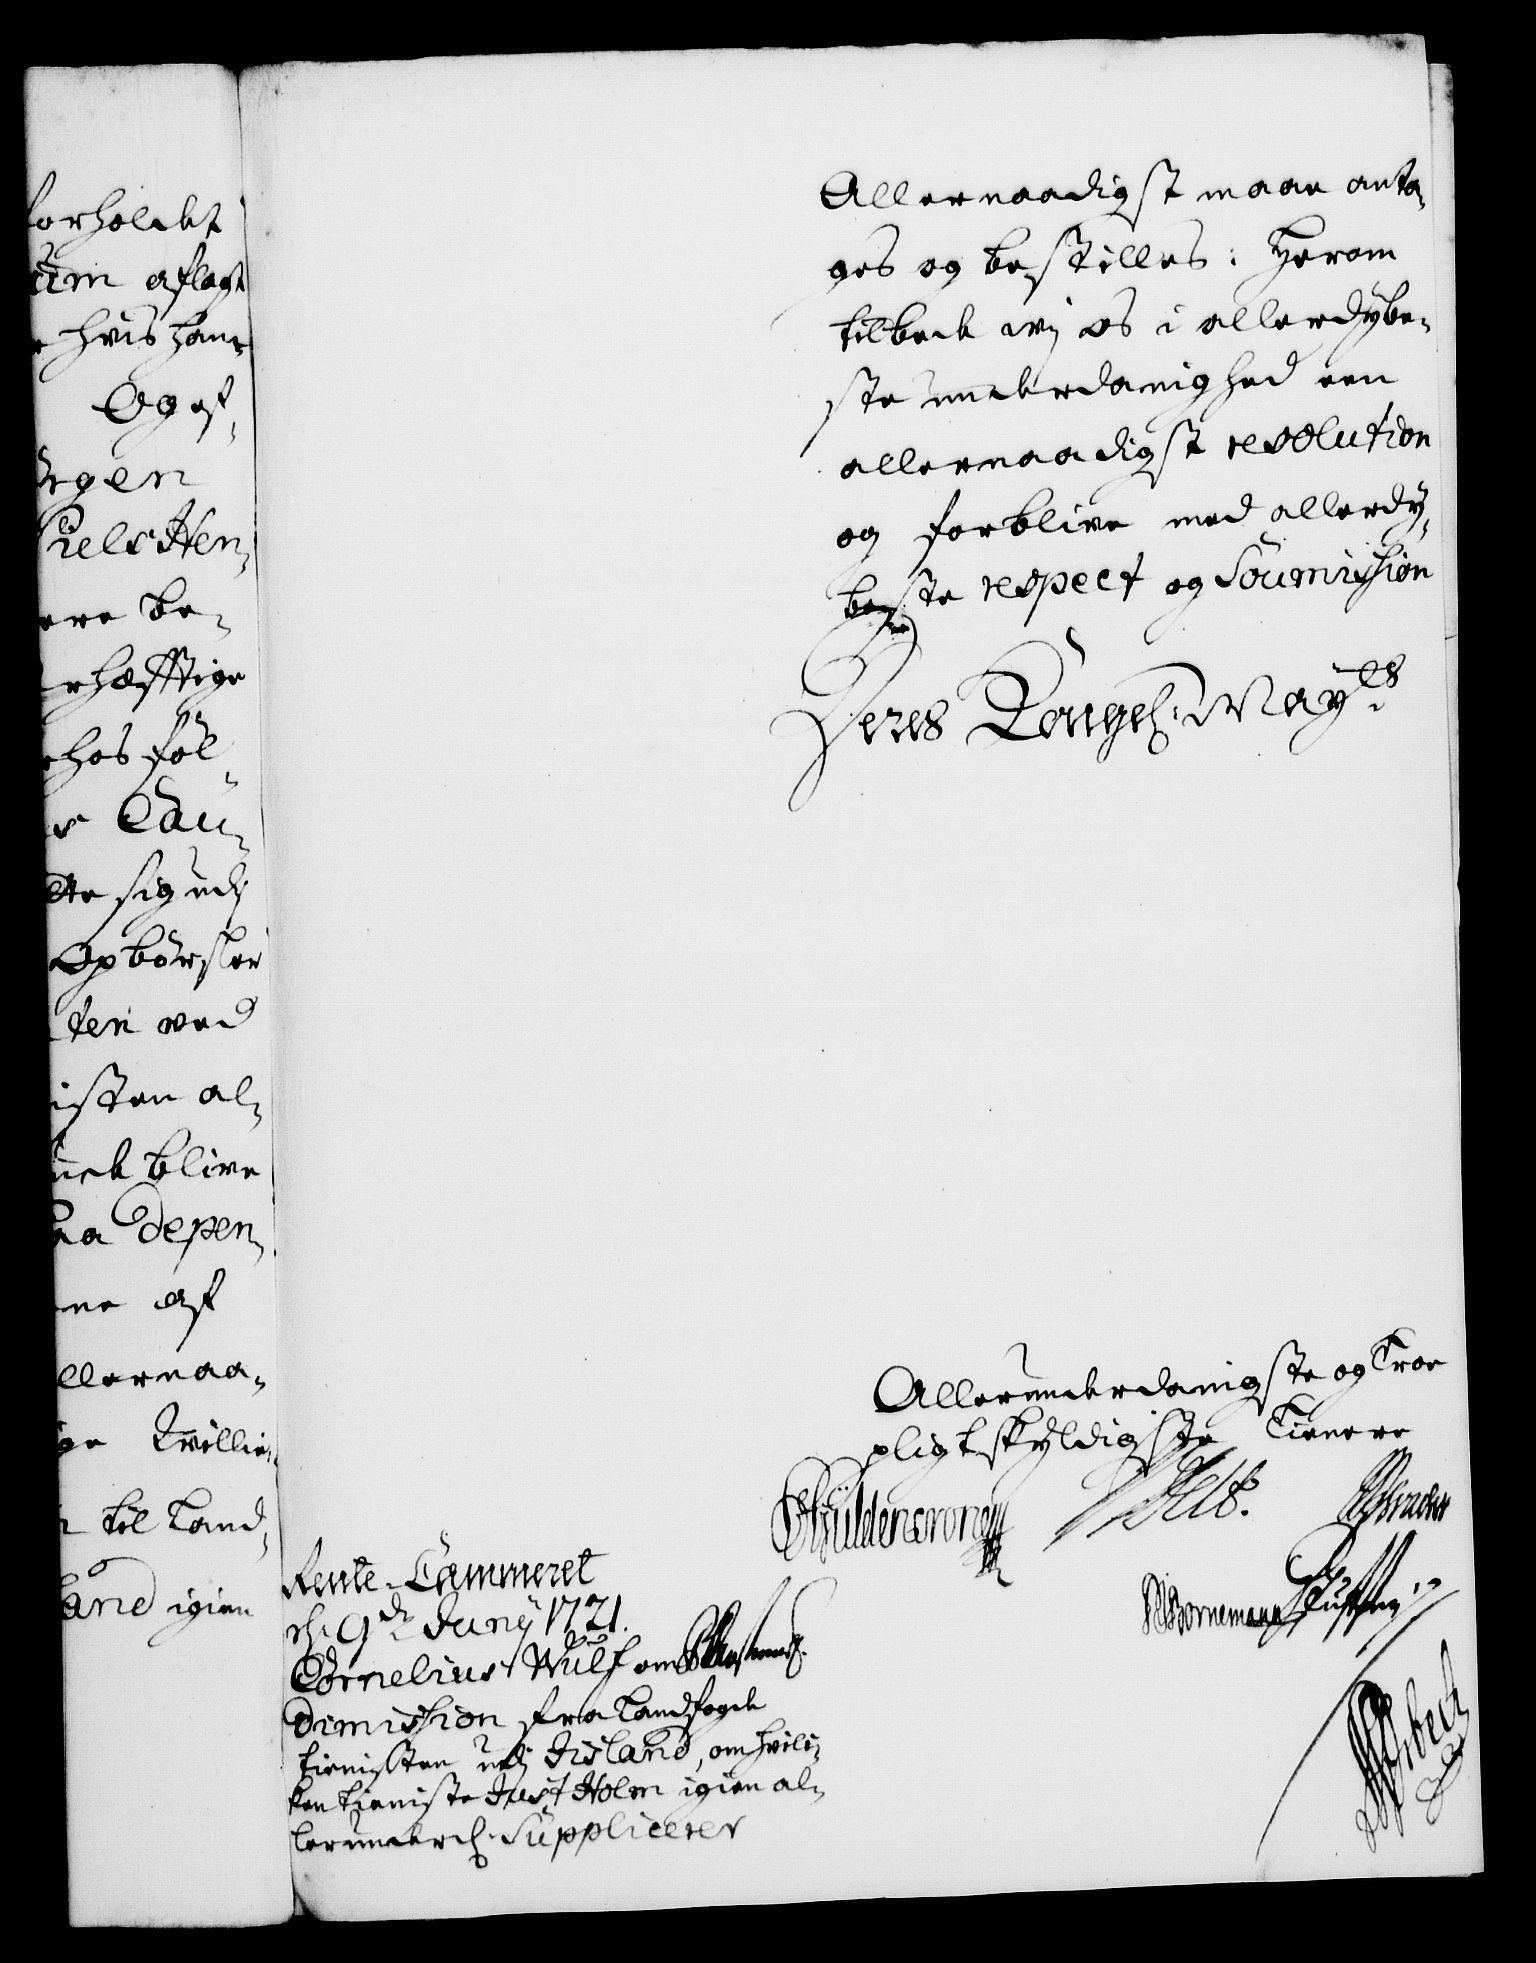 forholdet
um aflagt
hvis hann
Og ef-
rgen
Niels Hen-
ere be-
rhæfftige
hos föl-
Cau-
tte sig udj
Opbörsler
ten ved
isten al-
unde blive
paa Depen-
ne af
llernaa-
ge Qvillie-
til Land-
land igien
Allernaadigst maae anta-
ges og bestilles: Herom
tilbede wj os i allerdybe-
ste underdanighed een
allernaadigst resolution
og forblive med allerdy-
beste respect og Soumission
Deres Kongel. Mayts
Allerunderdanigste og Troe
pligtskyldigste Tienere
Güldencrone
Bornemann
Rente-Cammeret
d. 9de Junij 1721.
Cornelius Wulf om
Dimission fra Landfogde
tienisten udj Island, om hvil-
ken tieniste Just Holm igien al-
lerunderd. Supplicerer